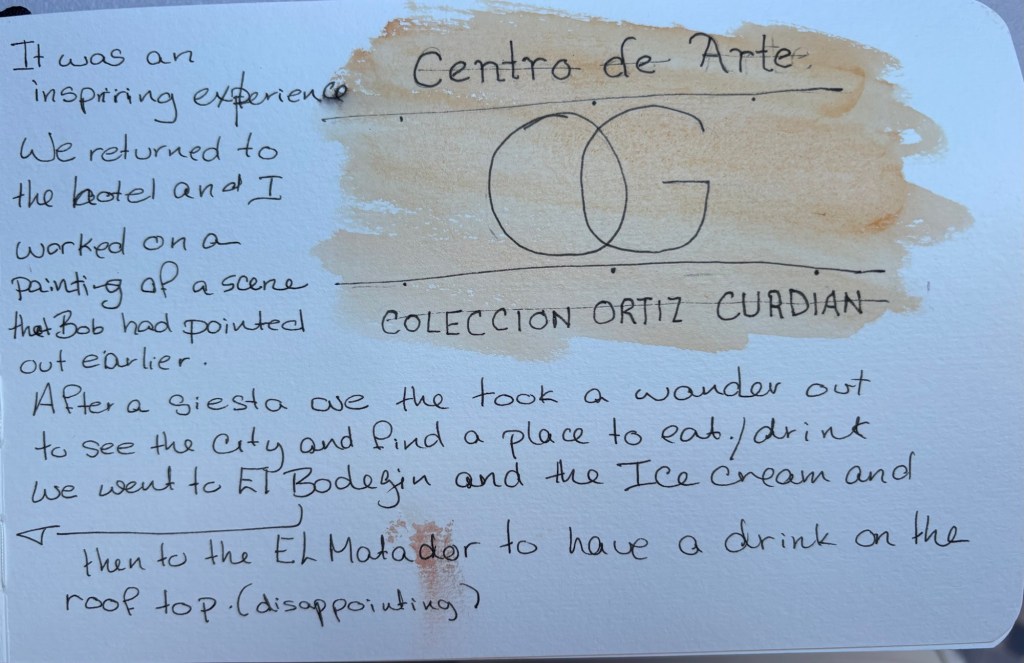 It was an
inspiring experience
We returned to
the hotel and I
worked on a
painting of a scene
that Bob had pointed
out earlier.
Centro de Arte.
OG
COLECCION ORTIZ CURDIAN
After a siesta we the took a wander out
to see the city and find a place to eat./drink
We went to El Bodegin and the Ice cream and
then to the EL Matador to have a drink on the
roof top. (disappointing)